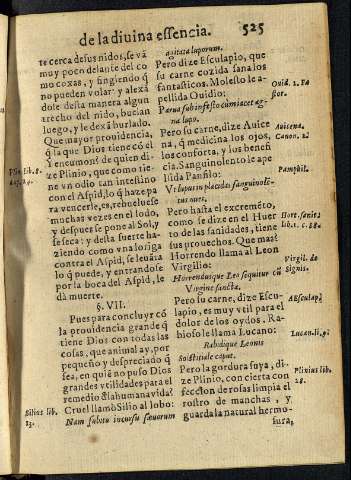 de la diuina essencia. 525
te cerca de sus nidos, se vã
muy poco delante del co
mo coxas, y fingiendo q̃
no pueden volar: y alexã
dole desta manera algun
trecho del nido, buelan
luego, y le dexã burlado.
Que mayor prouidencia,
q̃ la que Dios tiene cõ el
Yneumon? de quien di-
ze Plinio, que como tie-
ne vn odio tan intestino
con el Aspid, lo q̃ haze pa
ra vencerle, es, rebueluese
muchas vezes en el lodo,
y despues se pone al Sol, y
se seca: y desta suerte ha-
ziendo como vna loriga
contra el Aspid, se leuãta
lo q̃ puede, y entrandose
por la boca del Aspid, le
dà muerte.
§. VII.
Pues para concluyr cõ
la prouidencia grande q̃
tiene Dios con todas las
cosas, que animal ay, por
pequeño y despreciado q̃
sea, en quiẽ no puso Dios
grandes vtilidades para el
remedio d̃ la humana vida?
Cruel llamò Silio al lobo:
Nam subito incursu sæuorum
Plin. lib. 8.
cap. 24.
Silius lib.
13.
agitata luporum.
Pero dize Esculapio, que
su carne cozida sana los
fantasticos. Molesto le a-
pellida Ouidio:
Parua subinfesto cum iacet ag-
na lupo.
Pero su carne, dize Auice
na, q̃ medicina los ojos,
los conforta, y los benefi
cia. Sanguinolento le ape
llida Panfilo:
Vt lupus in placidas sanguinolẽ-
tus oues.
Pero hasta el excremẽto,
como se dize en el Huer
to de las sanidades, tiene
sus prouechos. Que mas?
Horrendo llama al Leon
Virgilio:
Horrendusque Leo sequitur cũ
Virgine sancta.
Pero su carne, dize Escu-
lapio, es muy vtil para el
dolor de los oydos. Ra-
bioso le llama Lucano:
Rabidique Leonis
Solstitiale caput.
Pero la gordura suya, di-
ze Plinio, con cierta con
feccion de rosas limpia el
rostro de manchas, y
guarda la natural hermo-
sura,
Ouid. 2. Fa
stor.
Auicena.
Canon. 2.
Pamphil.
Hort. sanit.
lib. 1. c. 88.
Virgil. de
signis.
Aesculap.
Lucan. li. 9.
Plinius lib.
28.